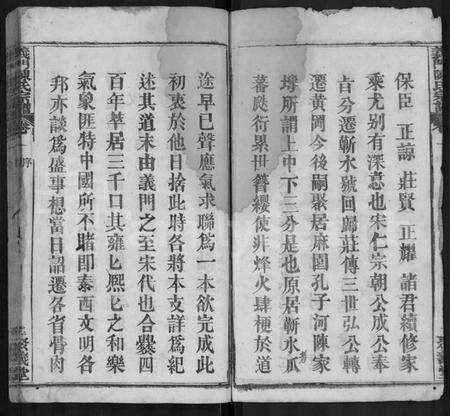 保臣 正諒 莊賢 正耀 諸君續修家
乘尤别有深意也宋仁宗朝公成公奉
旨分遷蘄水號回歸莊傳三世弘公轉
遷黃岡今後嗣聚居麻園孔子河陳家
塆所謂上中下三分是也原居蘄水瓜
蕃衍累世簪纓使非烽火肆梗於道
途早已聲應氣求聯爲一本欲完成此
初衷於他日捨此時各將本支詳爲紀
述其道末由義門之至宋代也合爨四
百年羣居三千口其雍匕熙匕之和樂
氣象匪特中國所不睹即泰西文明各
邦亦談爲盛事想當日詔遷各省骨肉
義門陳氏宗譜 卷一 序
聚義堂